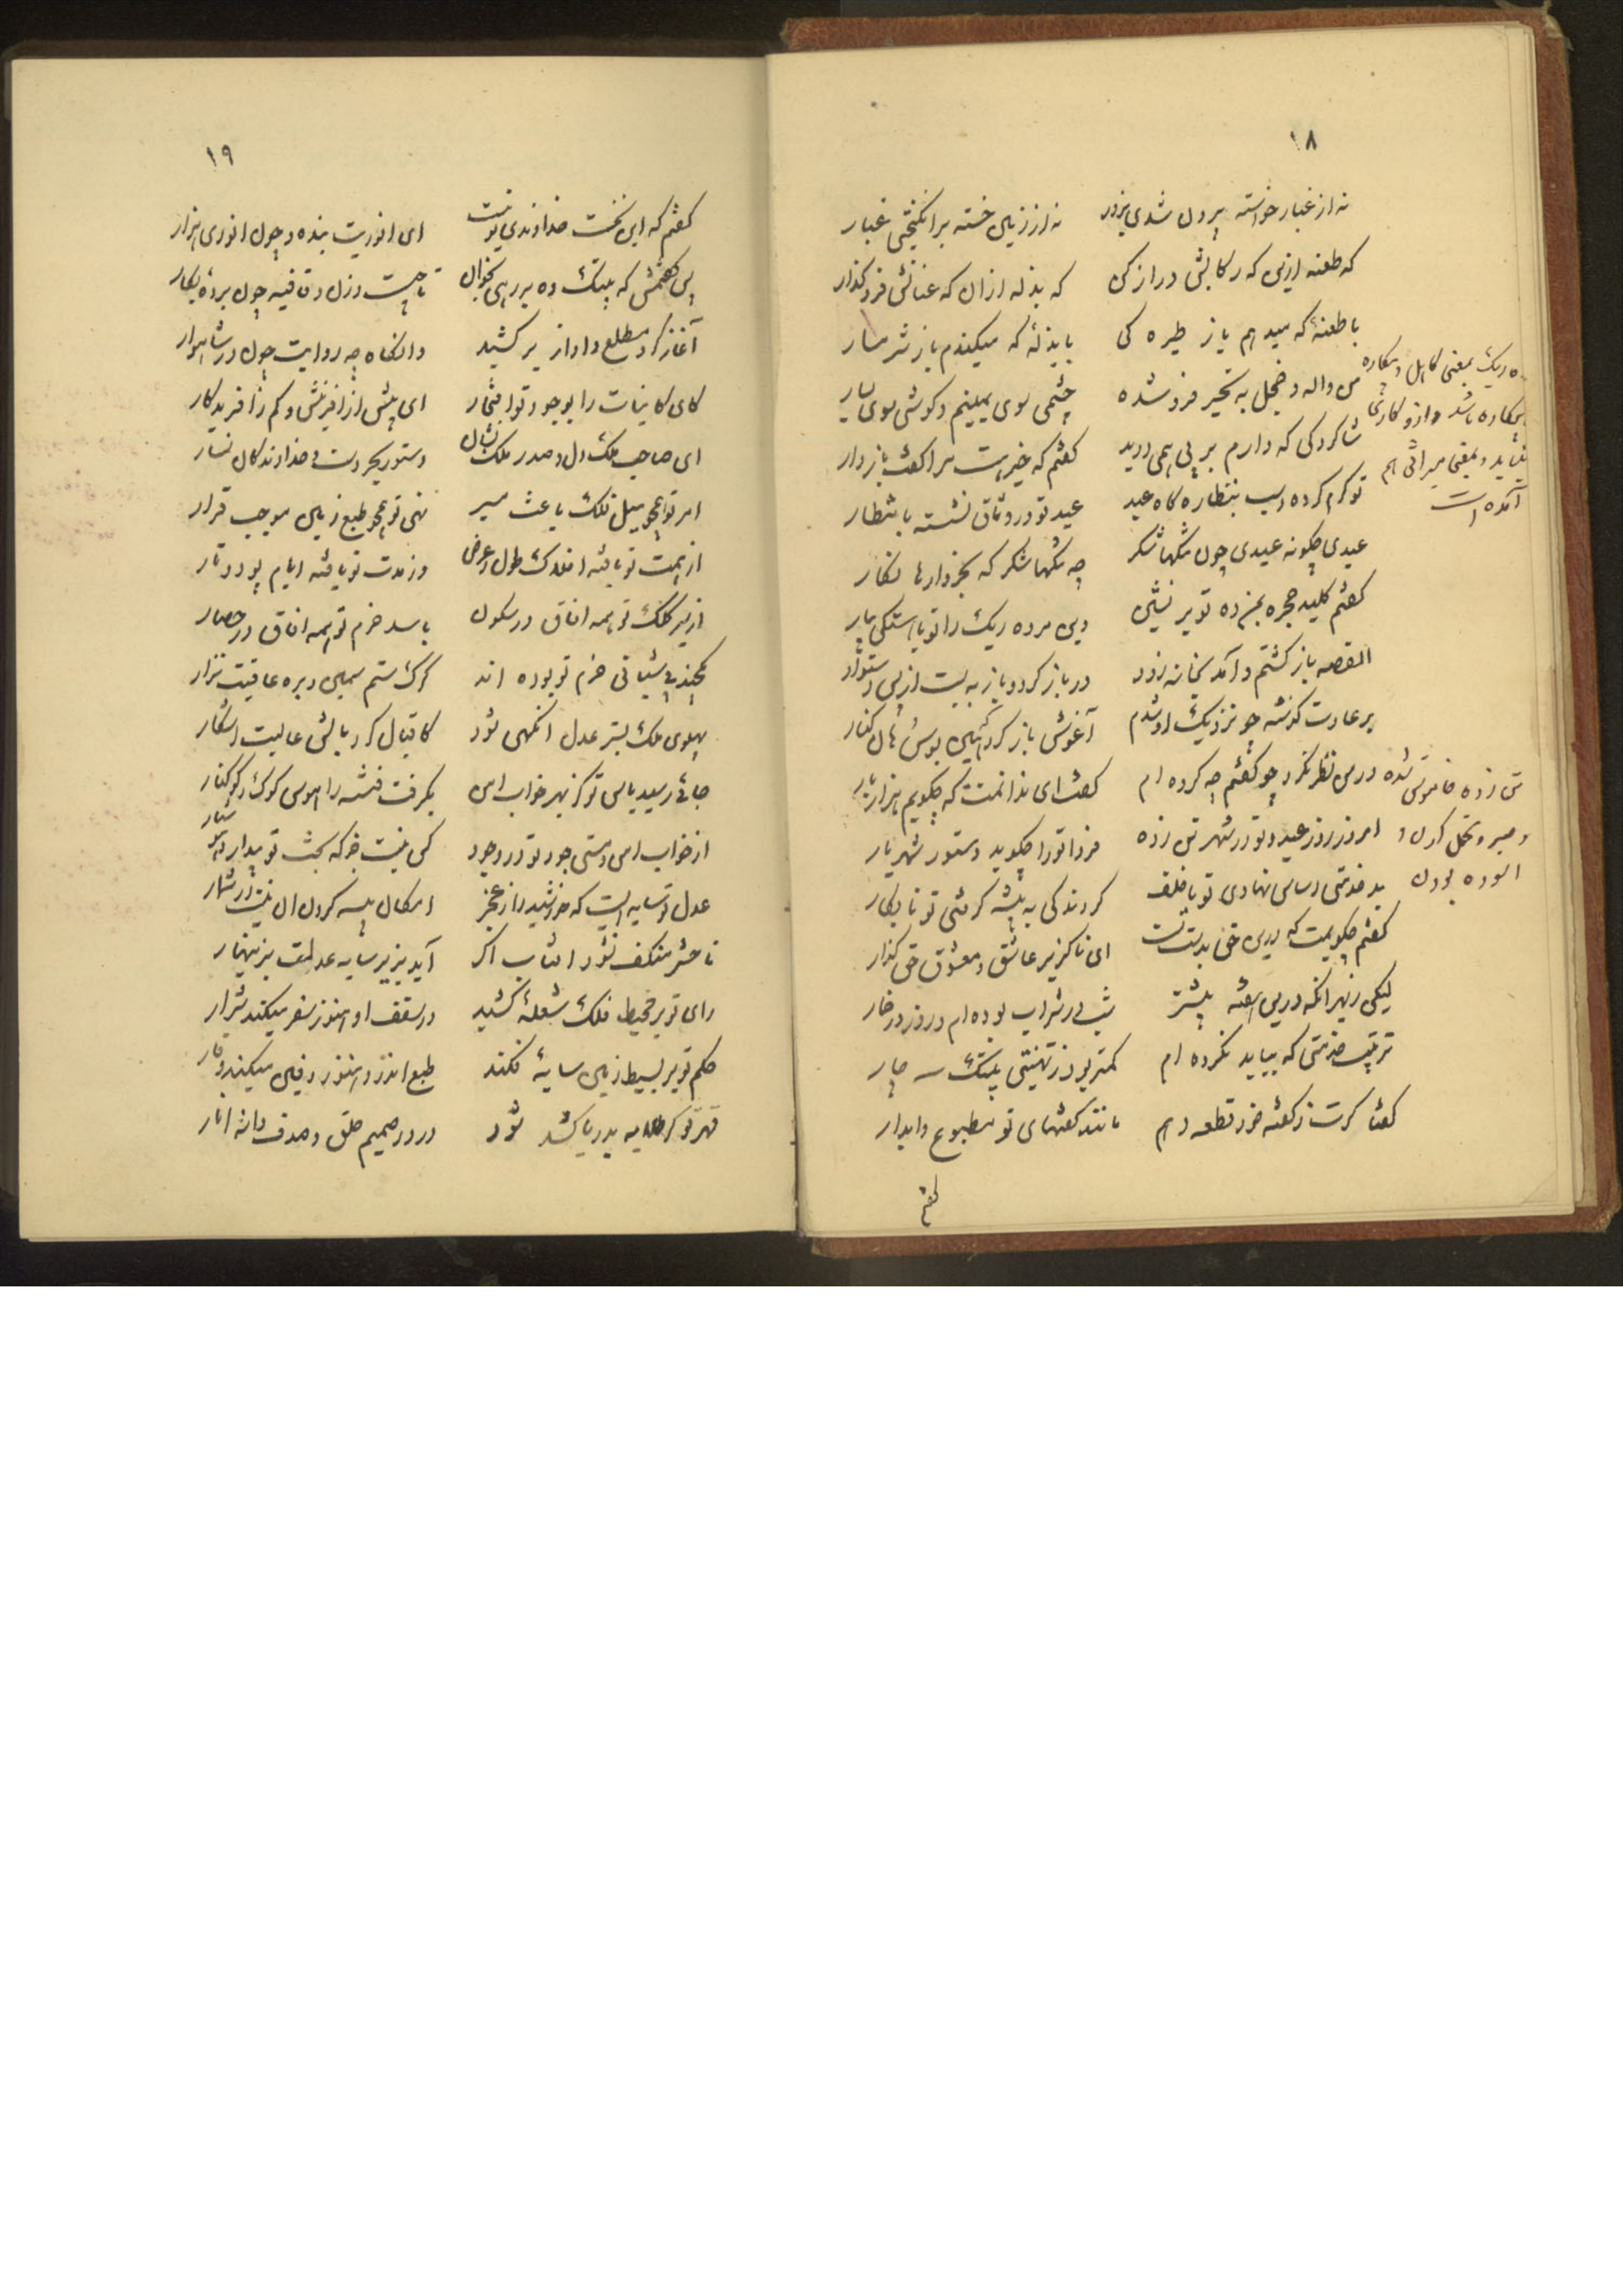 ۱۸
نه از غبار خواسته بیرون شدی بزور نه از زمین خسته برانگیختی غبار
که طعنه ازین که رکابش دراز کن که بذله ازان که عنانش فرو گذار
با طعنهٔ که میدهم یاز طیره کی با بذلهٔ که میکندم باز شرمسار
من واله و خجل به تحیر فرو شده چشمی سوی یمینم و گوشی سوی یسار
شاگردکی که دارم بر پی همی دوید گفتم که خیر هست مرا گفت باز دار
تو گرم کرده اسب بنظاره گاه عید عید تو در وثاق نشسته بانتظار
عیدی چگونه عیدی چون تنگها شکر چه تنگها شکر که بخروارها نگار
گفتم کلید حجره بمن ده تو بر نشین وین مرده ریک را تو باهستگی بیار
القصه باز گشتم و آمد بخانه زود در باز کرد و باز به بست از پس استوار
بر عادت گذشته چو نزدیک او شدم آغوش باز کرد همین بوس هان کنار
در من نظر نکرد چو گفتم چه کرده ام گفت ای ندانمت که چگویم هزار بار
امروز روز عید و تو در شهر تن زده فردا تو را چگوید دستور شهریار
بد خدمتی اساس نهادی تو ناخلف گردندگی به پیشه گرفتی تو نابکار
گفتم چگویمت که درین حق بدست تست ای ناگزیر عاشق و معشوق حق گذار
لیکن ز بهر انکه درین هفته بیشتر شب در شراب بوده ام و روز در خمار
ترتیب خدمتی که بباید نکرده ام کمتر بود ز تهنیتی بیتک سه چار
گفتا گرت ز گفته خود قطعه دهم مانند گفتهای تو مطبوع و ابدار
گفتم
ه ریک بمعنی کاهل و بیکاره
بیکاره باشد و ازو کاری
نیاید و بمعنی میراثی هم
آمده است
تن زده خاموش شده
و صبر و تحمل کردن و
اسوده بودن
۱۹
گفتم که این نخست خداوندی تو نیست ای انوریت بنده و چون انوری هزار
پس گفتمش که بیتک ده بر رهی بخوان تا چیست وزن و قافیه چون بردهٔ بکار
آغاز کرد مطلع و اواز بر کشید وانگاه چه روایت چون در شاهوار
کای کاینات را بوجود تو افتخار ای پیش از افرینش و کم ز افریدگار
ای صاحب ملک دل و صدر ملک نشان دستور بحر دست و خداوند کان یسار
امر تو محو میل فلک باعث مسیر نهی تو محو طبع زمین موجب قرار
از همت تو یافته افلاک طول و عرض وز مدت تو یافته ایام پود و تار
از سیر کلک تو همه افاق در سکون با سد حزم تو همه افاق در حصار
تا چند در شبانی حزم تو بوده اند گرک ستم سمین و بره عافیت نزار
پهلوی ملک بستر عدل انگهی شود کاقبال کرد بالش عالیت اشکار
جائی رسید پاس تو کز بهر خواب امن بگرفت فتنه را هوس کوک و کوکنار
از خواب امن و مستی جود تو در وجود کس نیست جز که بخت تو بیدار و هوشیار
عدل تو سایه ایست که خورشید را ز عجز امکان پیسه کردن ان نیست در شمار
تا حشر منکسف نشود افتاب اگر آید بزیر سایه عدلت بزینهار
رای تو بر محیط فلک شعلهٔ کشید در سقف او هنوز سفر میکند شرار
حکم تو بر بسیط زمین سایهٔ فکند طبع اندرو هنوز دفین میکند وقار
قهر تو گر طلایه بدریا کشد شود در در صمیم حلق و صدف دانه انار